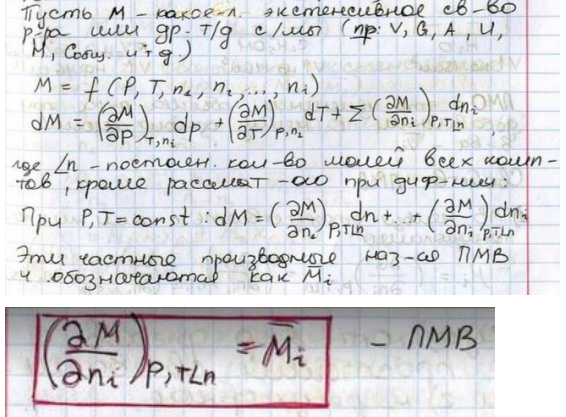 Пусть M – какое-л. экстенсивное св-во
р-ра или др. т/д с/мы (пр: V, G, A, U,
H, Cобщ. и т.д.)
M = f (P, T, n₁, n₂, ..., nᵢ)
dM = (∂M/∂P)T,nᵢ dp + (∂M/∂T)P,nᵢ dT + Σ (∂M/∂nᵢ)P,T,Ln dnᵢ ,
где Ln – постоян. кол-во молей всех комп-
тов, кроме рассмат-ого при диф-нии
При P,T=const : dM = (∂M/∂n₁)P,T,Ln dn + ... + (∂M/∂nᵢ)P,T,Ln dnₙ
Эти частные производные наз-ся ПМВ
и обозначаются как Mᵢ
(∂M/∂nᵢ)P,T,Ln = M̄ᵢ – ПМВ